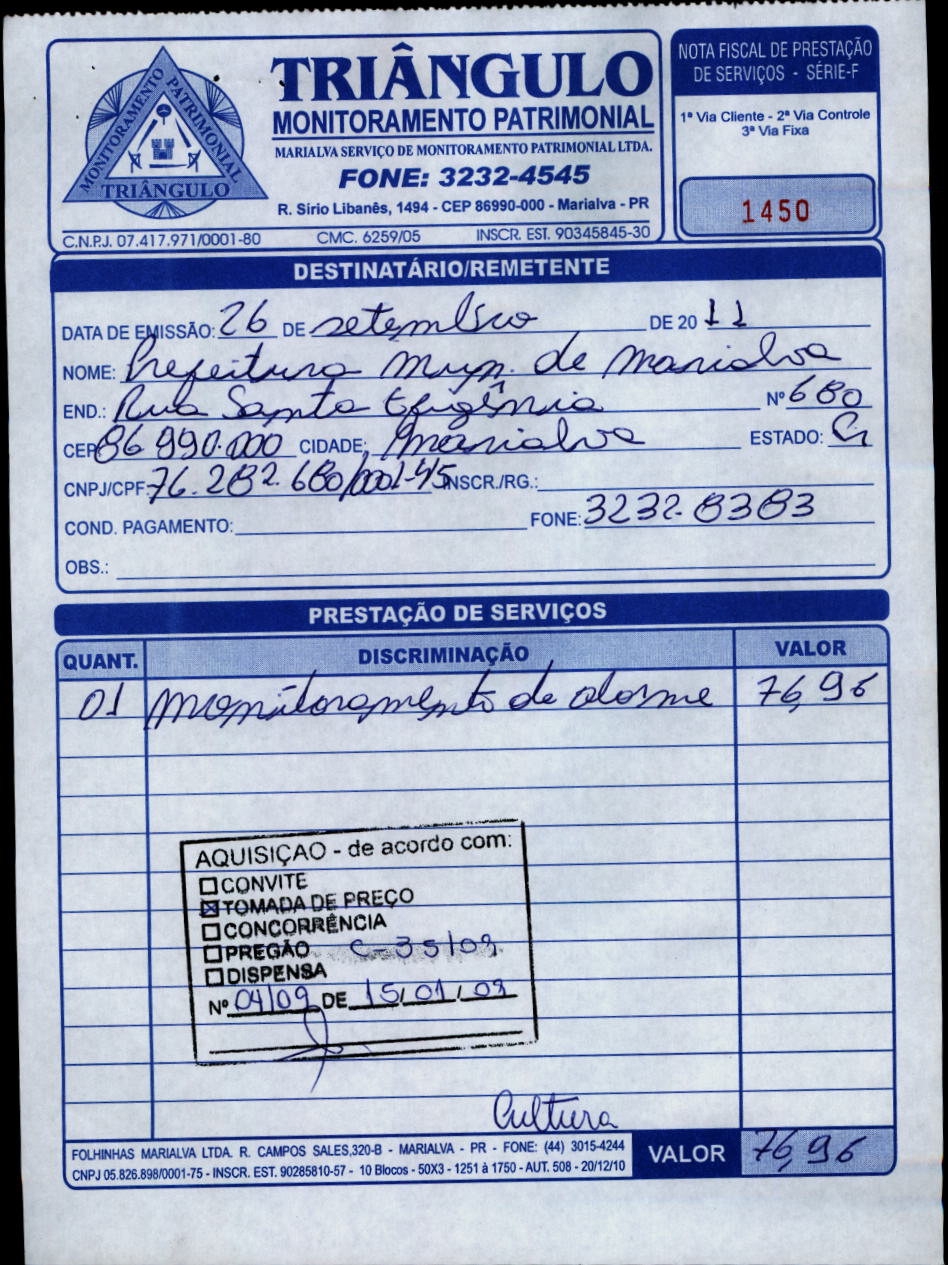 TRIÂNGULO
MONITORAMENTO PATRIMONIAL
MARIALVA SERVIÇO DE MONITORAMENTO PATRIMONIAL LTDA.
FONE: 3232-4545
R. Sírio Libanês, 1494 - CEP 86990-000 - Marialva - PR
C.N.P.J. 07.417.971/0001-80 CMC. 6259/05 INSCR. EST. 90345845-30
MONITORAMENTO PATRIMONIAL
TRIÂNGULO
NOTA FISCAL DE PRESTAÇÃO
DE SERVIÇOS - SÉRIE-F
1ª Via Cliente - 2ª Via Controle
3ª Via Fixa
1450
DESTINATÁRIO/REMETENTE
DATA DE EMISSÃO: 26 DE setembro DE 20 11
NOME: Prefeitura Mun. de Marialva
END.: Rua Santa Efigênia Nº 680
CEP 86 990.000 CIDADE: Marialva ESTADO:
CNPJ/CPF 76.282.680/0001-45 INSCR./RG.:
COND. PAGAMENTO: FONE: 3232-8383
OBS.:
PRESTAÇÃO DE SERVIÇOS
QUANT. DISCRIMINAÇÃO VALOR
01 Monitoramento de alarme 76,96
AQUISIÇÃO - de acordo com:
CONVITE
TOMADA DE PREÇO
CONCORRÊNCIA
PREGÃO C-35/09
DISPENSA
Nº 04/09 DE 15/01/09
Cultura
FOLHINHAS MARIALVA LTDA. R. CAMPOS SALES,320-B - MARIALVA - PR - FONE: (44) 3015-4244
CNPJ 05.826.898/0001-75 - INSCR. EST. 90285810-57 - 10 Blocos - 50X3 - 1251 à 1750 - AUT. 508 - 20/12/10
VALOR 76,96